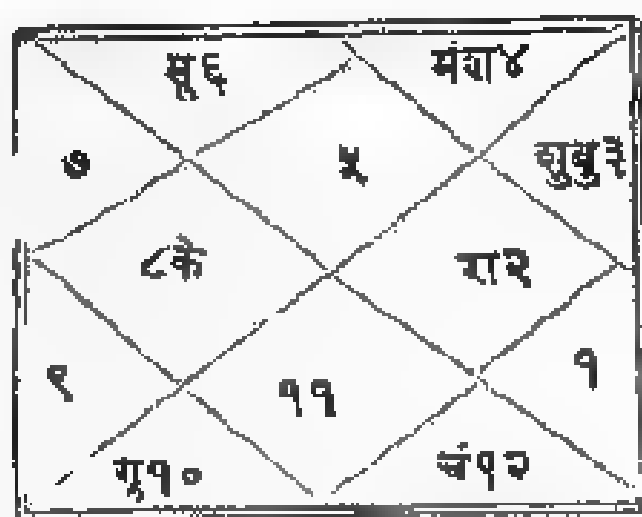 सू६ मंश४
७ ५ शुबु३
८के रा२
९ ११ १
गु१० चं१२